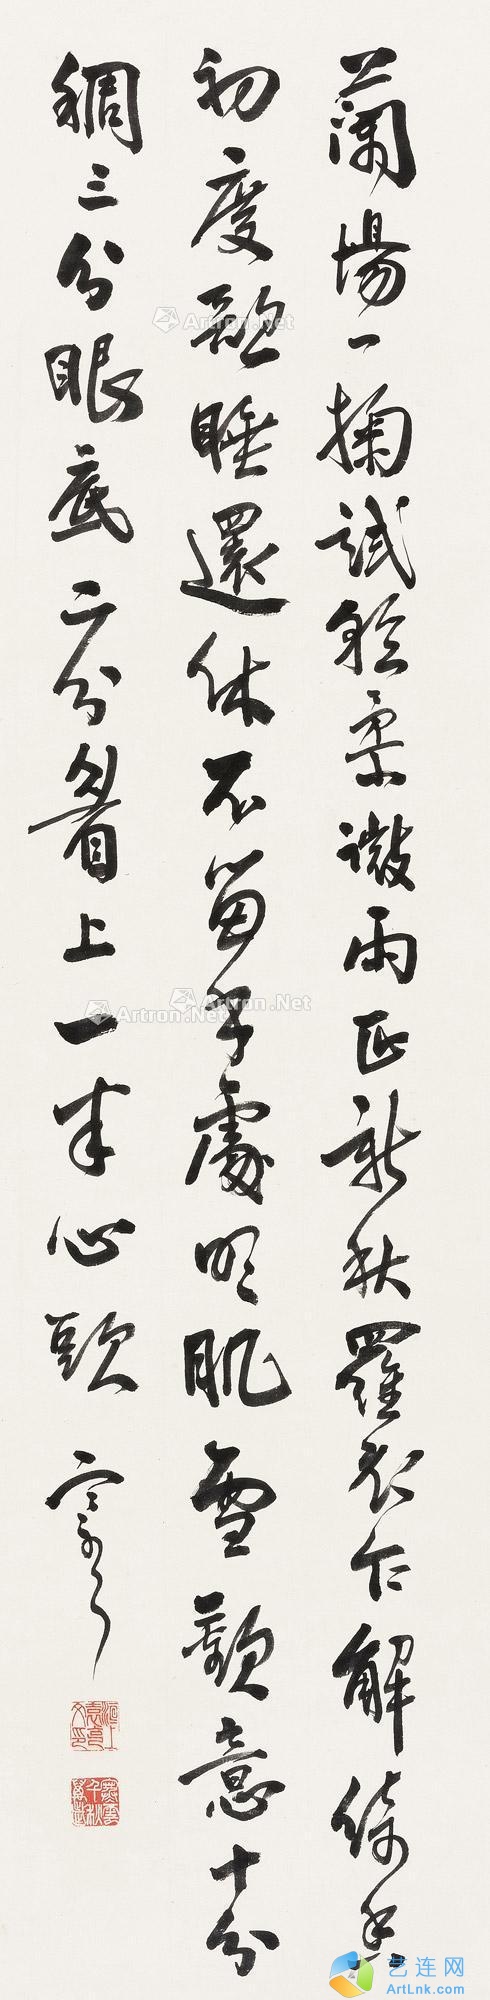 蘭湯一掬試輕柔微雨正新秋羅衣乍解倚香
初度欲睡還休不留手處明肌雪歡意十分
稠三分眼底二分眉上一半心頭 寒雲
Artron.Net
Artron.Net
Artron.Net
艺连网
ArtLink.com